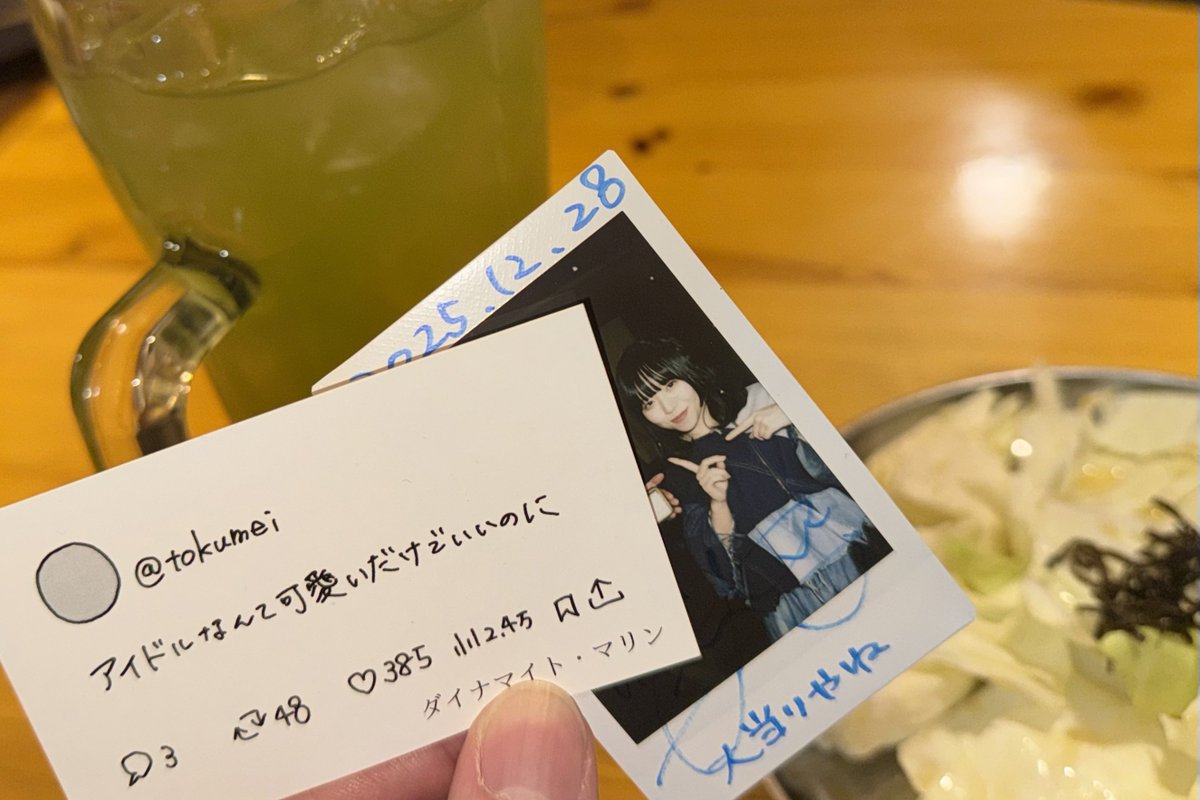 2025.12.28
@tokumei
アイドルなんて可愛いだけでいいのに
3 48 385 2.4万
ダイナマイト・マリン
大当りやね